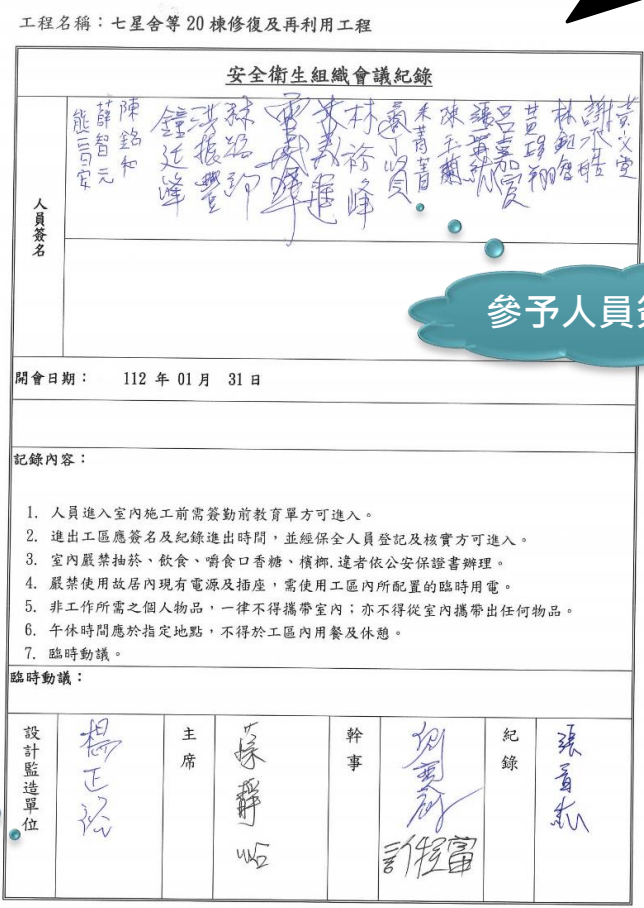 工程名稱：七星舍等 20 棟修復及再利用工程
安全衛生組織會議紀錄
人員簽名
陳銘和
薛智元
鐘廷峰
洪振豐
林裕峰
陳玉蘭
黃文堂
參予人員
開會日期： 112 年 01 月 31 日
記錄內容：
1. 人員進入室內施工前需簽勤前教育單方可進入。
2. 進出工區應簽名及紀錄進出時間，並經保全人員登記及核實方可進入。
3. 室內嚴禁抽菸、飲食、嚼食口香糖、檳榔.違者依公安保證書辦理。
4. 嚴禁使用故居內現有電源及插座，需使用工區內所配置的臨時用電。
5. 非工作所需之個人物品，一律不得攜帶室內；亦不得從室內攜帶出任何物品。
6. 午休時間應於指定地點，不得於工區內用餐及休憩。
7. 臨時動議。
臨時動議：
設計監造單位
主席
幹事
紀錄